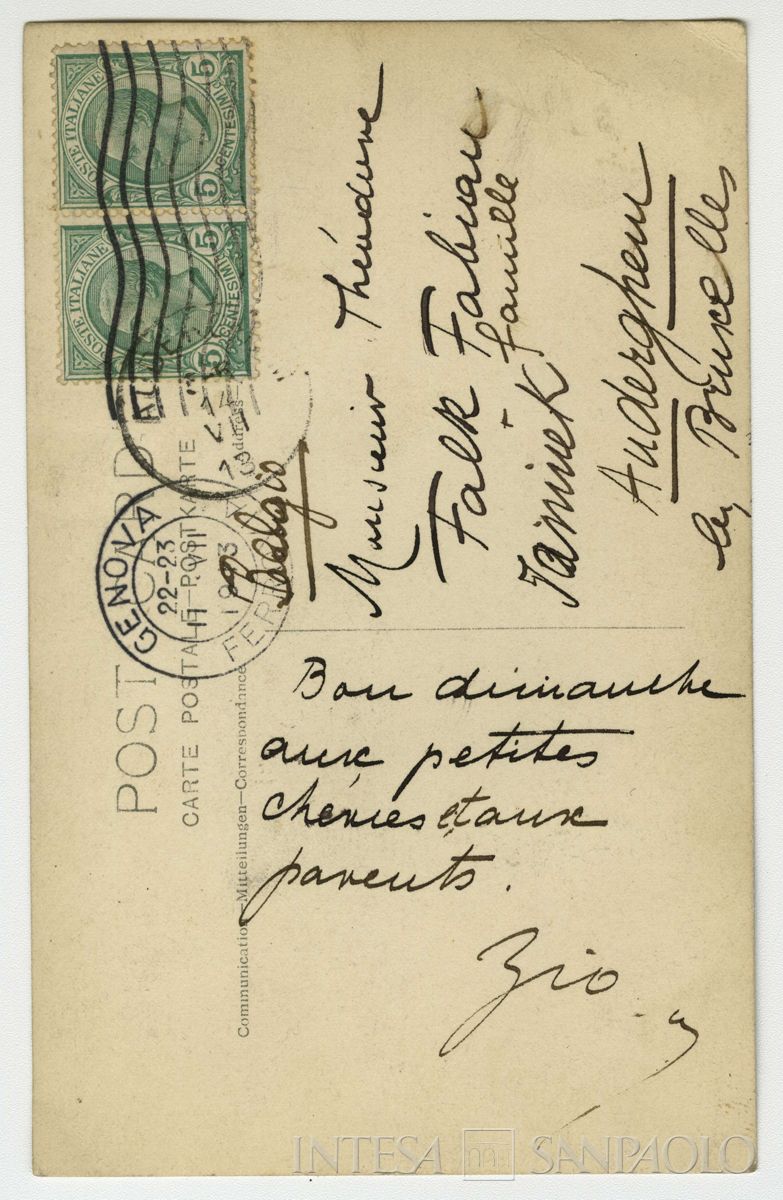 POSTE ITALIANE
5 CENTESIMI 5
POSTE ITALIANE
5 CENTESIMI 5
POST CARD
CARTE POSTALE—POSTKARTE
Communication—Mitteilungen—Correspondance
Address
GENOVA
22-23
11 VII
FERR
Belgio
Monsieur Théodore
Falk Fabian
+ famille
Auderghem
Bruxelles
Bon dimanche
aux petites
chéries et aux
parents.
Zio
INTESA SANPAOLO